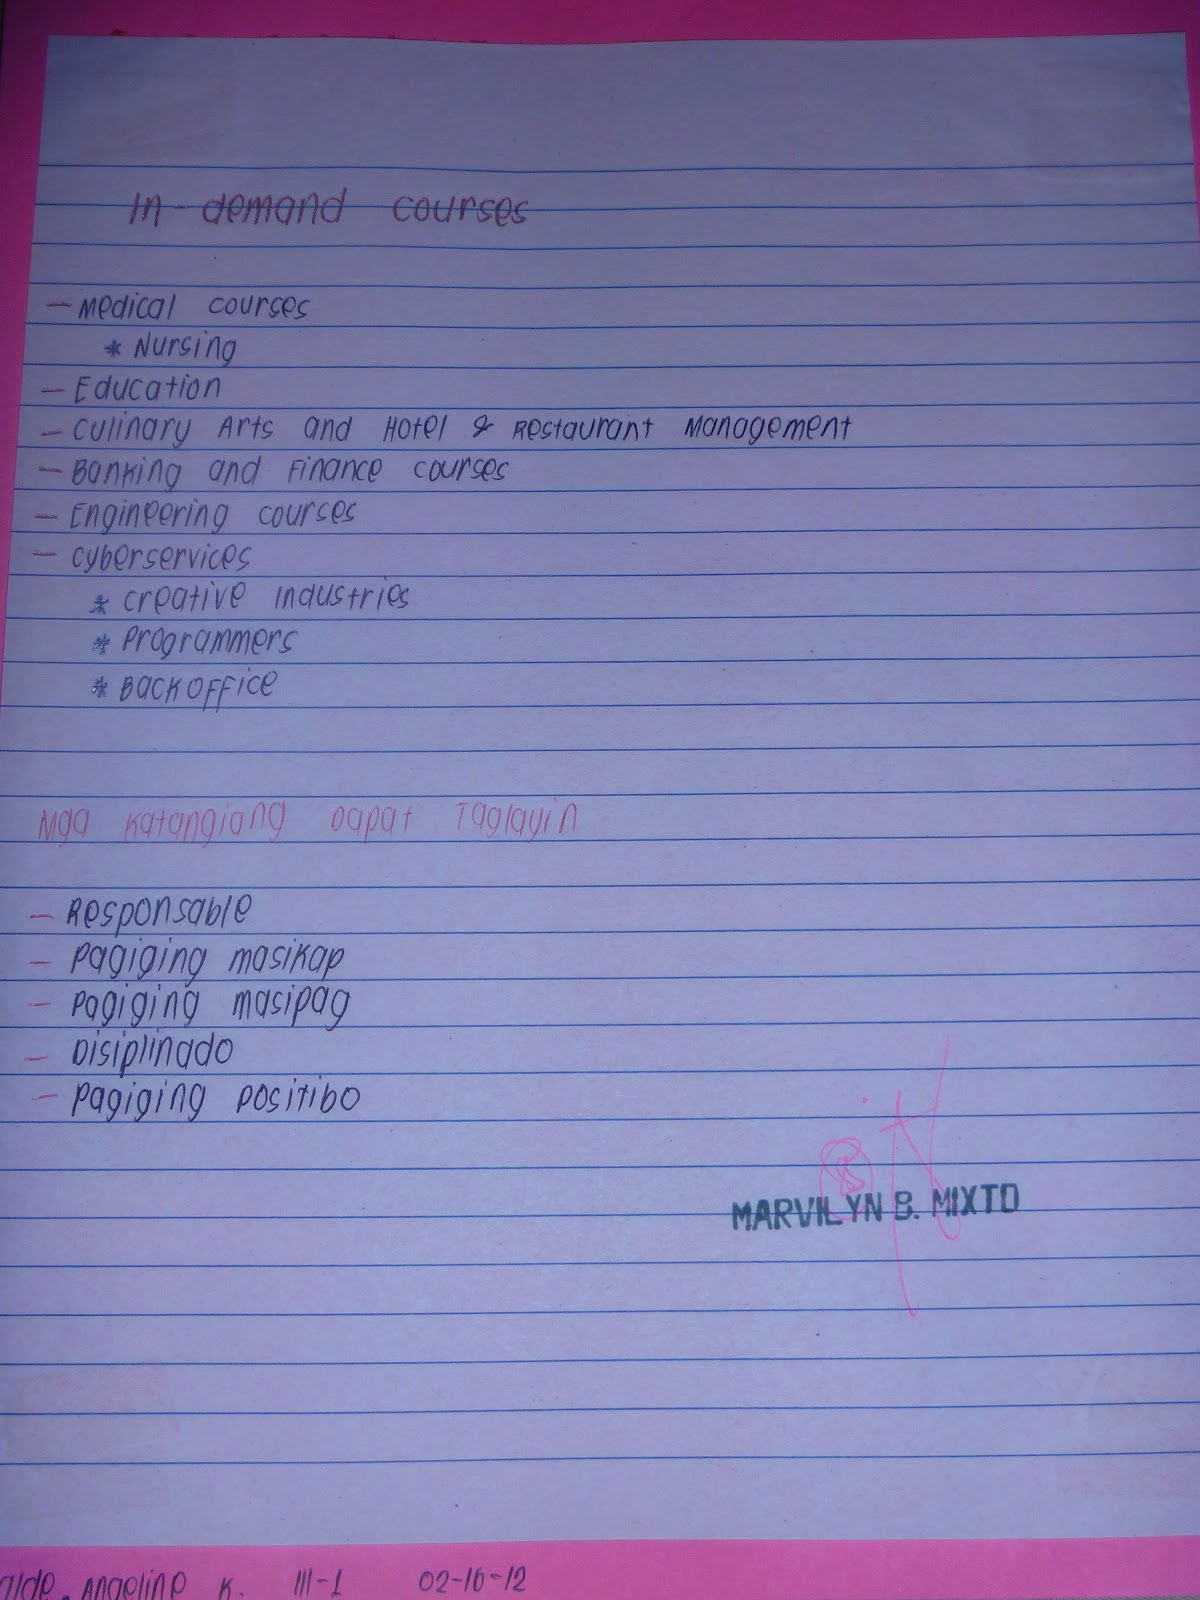 In-demand courses
- Medical courses
* Nursing
- Education
- Culinary Arts and Hotel & Restaurant Management
- Banking and Finance courses
- Engineering courses
- Cyberservices
* Creative Industries
* Programmers
* Backoffice
Mga Katangiang Dapat Taglayin
- Responsable
- Pagiging masikap
- Pagiging masipag
- Disiplinado
- Pagiging positibo
MARVILYN B. MIXTO
Angeline K. III-1 02-16-12